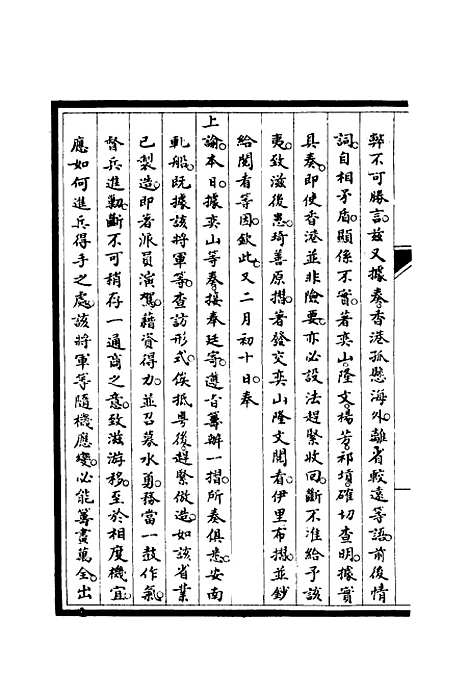 弊不可勝言。茲又據奏香港孤懸海外。離省較遠等語。前後情
詞。自相矛盾。顯係不實。著奕山。隆文。楊芳。祁𡎴。確切查明。據實
具奏。即使香港並非險要。亦必設法趕緊收回。斷不准給予該
夷。致滋後患。琦善原摺。著發交奕山隆文閱看。伊里布摺。並鈔
給閱看等因。欽此。又二月初十日。奉
上諭。本日據奕山等奏。接奉廷寄。遵旨籌辦一摺。所奏俱悉。安南
軋船。既據該將軍等。查訪形式。俟抵粵後。趕緊倣造。如該省業
已製造。即著派員演駕。藉資得力。並召募水勇。務當一鼓作氣。
督兵進勦。斷不可稍存一通商之意。致滋游移。至於相度機宜。
應如何進兵得手之處。該將軍等隨機應變。必能籌畫萬全。出